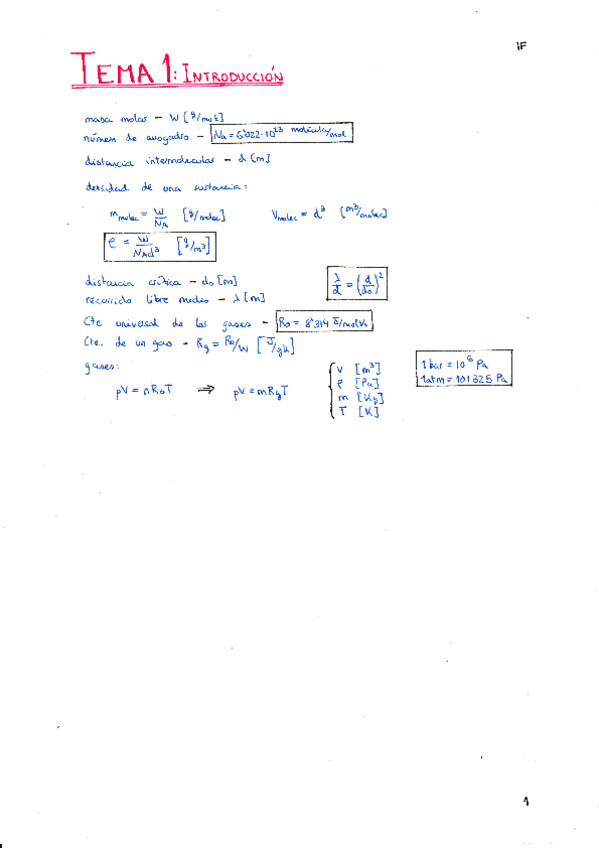 IF
TEMA 1: INTRODUCCIÓN
masa molar - W [g/mol]
número de avogadro - Na = 6'022·10²³ moléculas/mol
distancia intermolecular - d [m]
densidad de una sustancia:
m_molec = W/N_A [g/molec] V_molec = d³ [m³/molec]
ρ = W/(N_A d³) [g/m³]
distancia crítica - d₀ [m] λ/d = (d/d₀)²
recorrido libre medio - λ [m]
Cte universal de los gases - R₀ = 8'314 J/molK
Cte. de un gas - R_g = R₀/W [J/gK]
gases: V [m³] 1 bar = 10⁵ Pa
pV = nR₀T ⇒ pV = mR_gT P [Pa] 1 atm = 101325 Pa
m [Kg]
T [K]
1